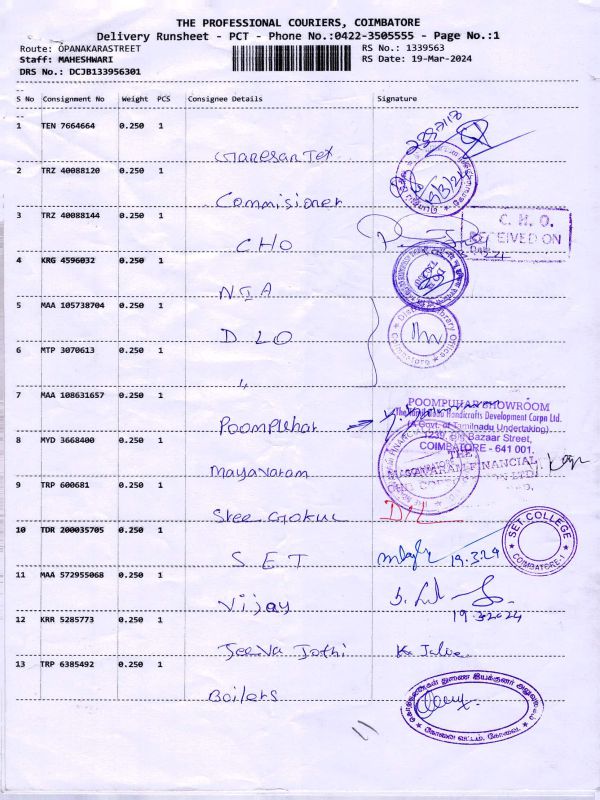 THE PROFESSIONAL COURIERS, COIMBATORE
Delivery Runsheet - PCT - Phone No.:0422-3505555 - Page No.:1
Route: OPANAKARASTREET
RS No.: 1339563
Staff: MAHESHWARI
RS Date: 19-Mar-2024
DRS No.: DCJB133956301
S No Consignment No Weight PCS Consignee Details Signature
1 TEN 7664664 0.250 1
2 TRZ 40088120 0.250 1
Commisioner
3 TRZ 40088144 0.250 1
CHO
C. H. O.
RECEIVED ON
4 KRG 4596032 0.250 1
NIA
5 MAA 105738704 0.250 1
DLO
Library Office
Coimbatore
6 MTP 3070613 0.250 1
"
7 MAA 108631657 0.250 1
Poompuhar
POOMPUHAR SHOWROOM
The Tamilnadu Handicrafts Development Corpn Ltd.
(A Govt. of Tamilnadu Undertaking)
Big Bazaar Street,
COIMBATORE - 641 001.
8 MYD 3668400 0.250 1
Mayavaram
THE
MAYAVARAM FINANCIAL
9 TRP 600681 0.250 1
Sree Gokul
10 TDR 200035705 0.250 1
S.E.T
19.3.24
SET COLLEGE
COIMBATORE-1
11 MAA 572955068 0.250 1
Vijay
19.3.2024
12 KRR 5285773 0.250 1
Jeeva Jothi
13 TRP 6385492 0.250 1
Boilers